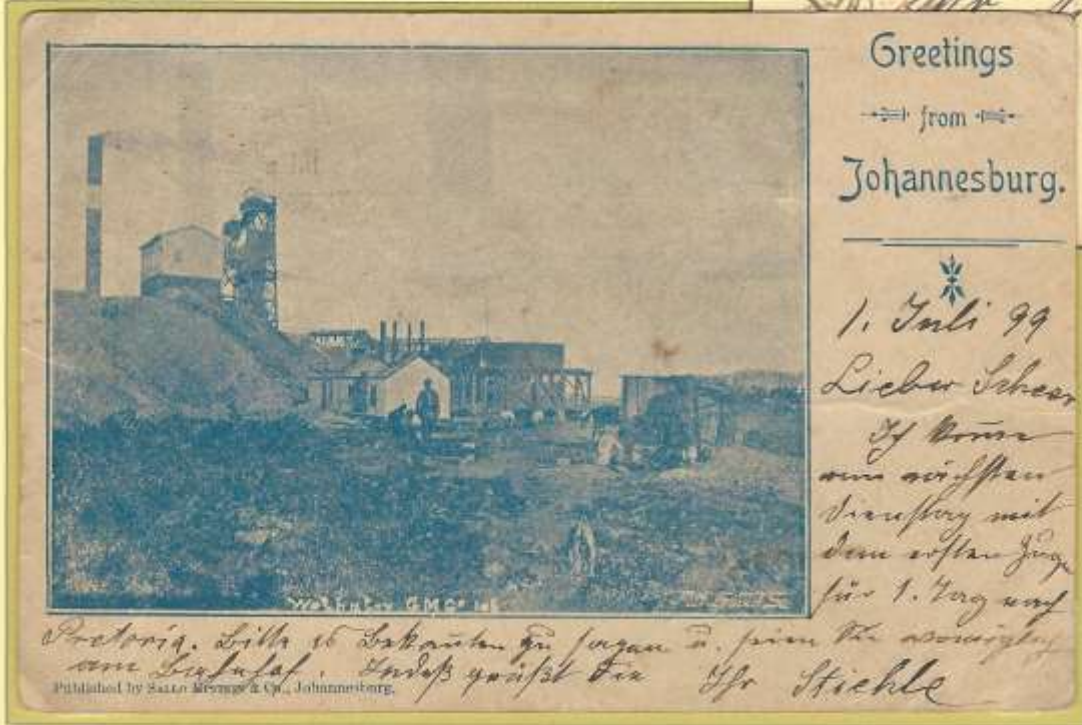 Greetings
from
Johannesburg.
1. Juli 99
Lieber
Ich komme
am nächsten
Dienstag mit
dem ersten Zuge
für 1. Tag nach
Pretoria. Bitte es Bekannten zu sagen u. seien Sie womöglich
am Bahnhof. Indeß grüßt Sie Ihr Stiehle
Wolhuter G.M.Co
Published by Sallo Epstein & Co., Johannesburg.